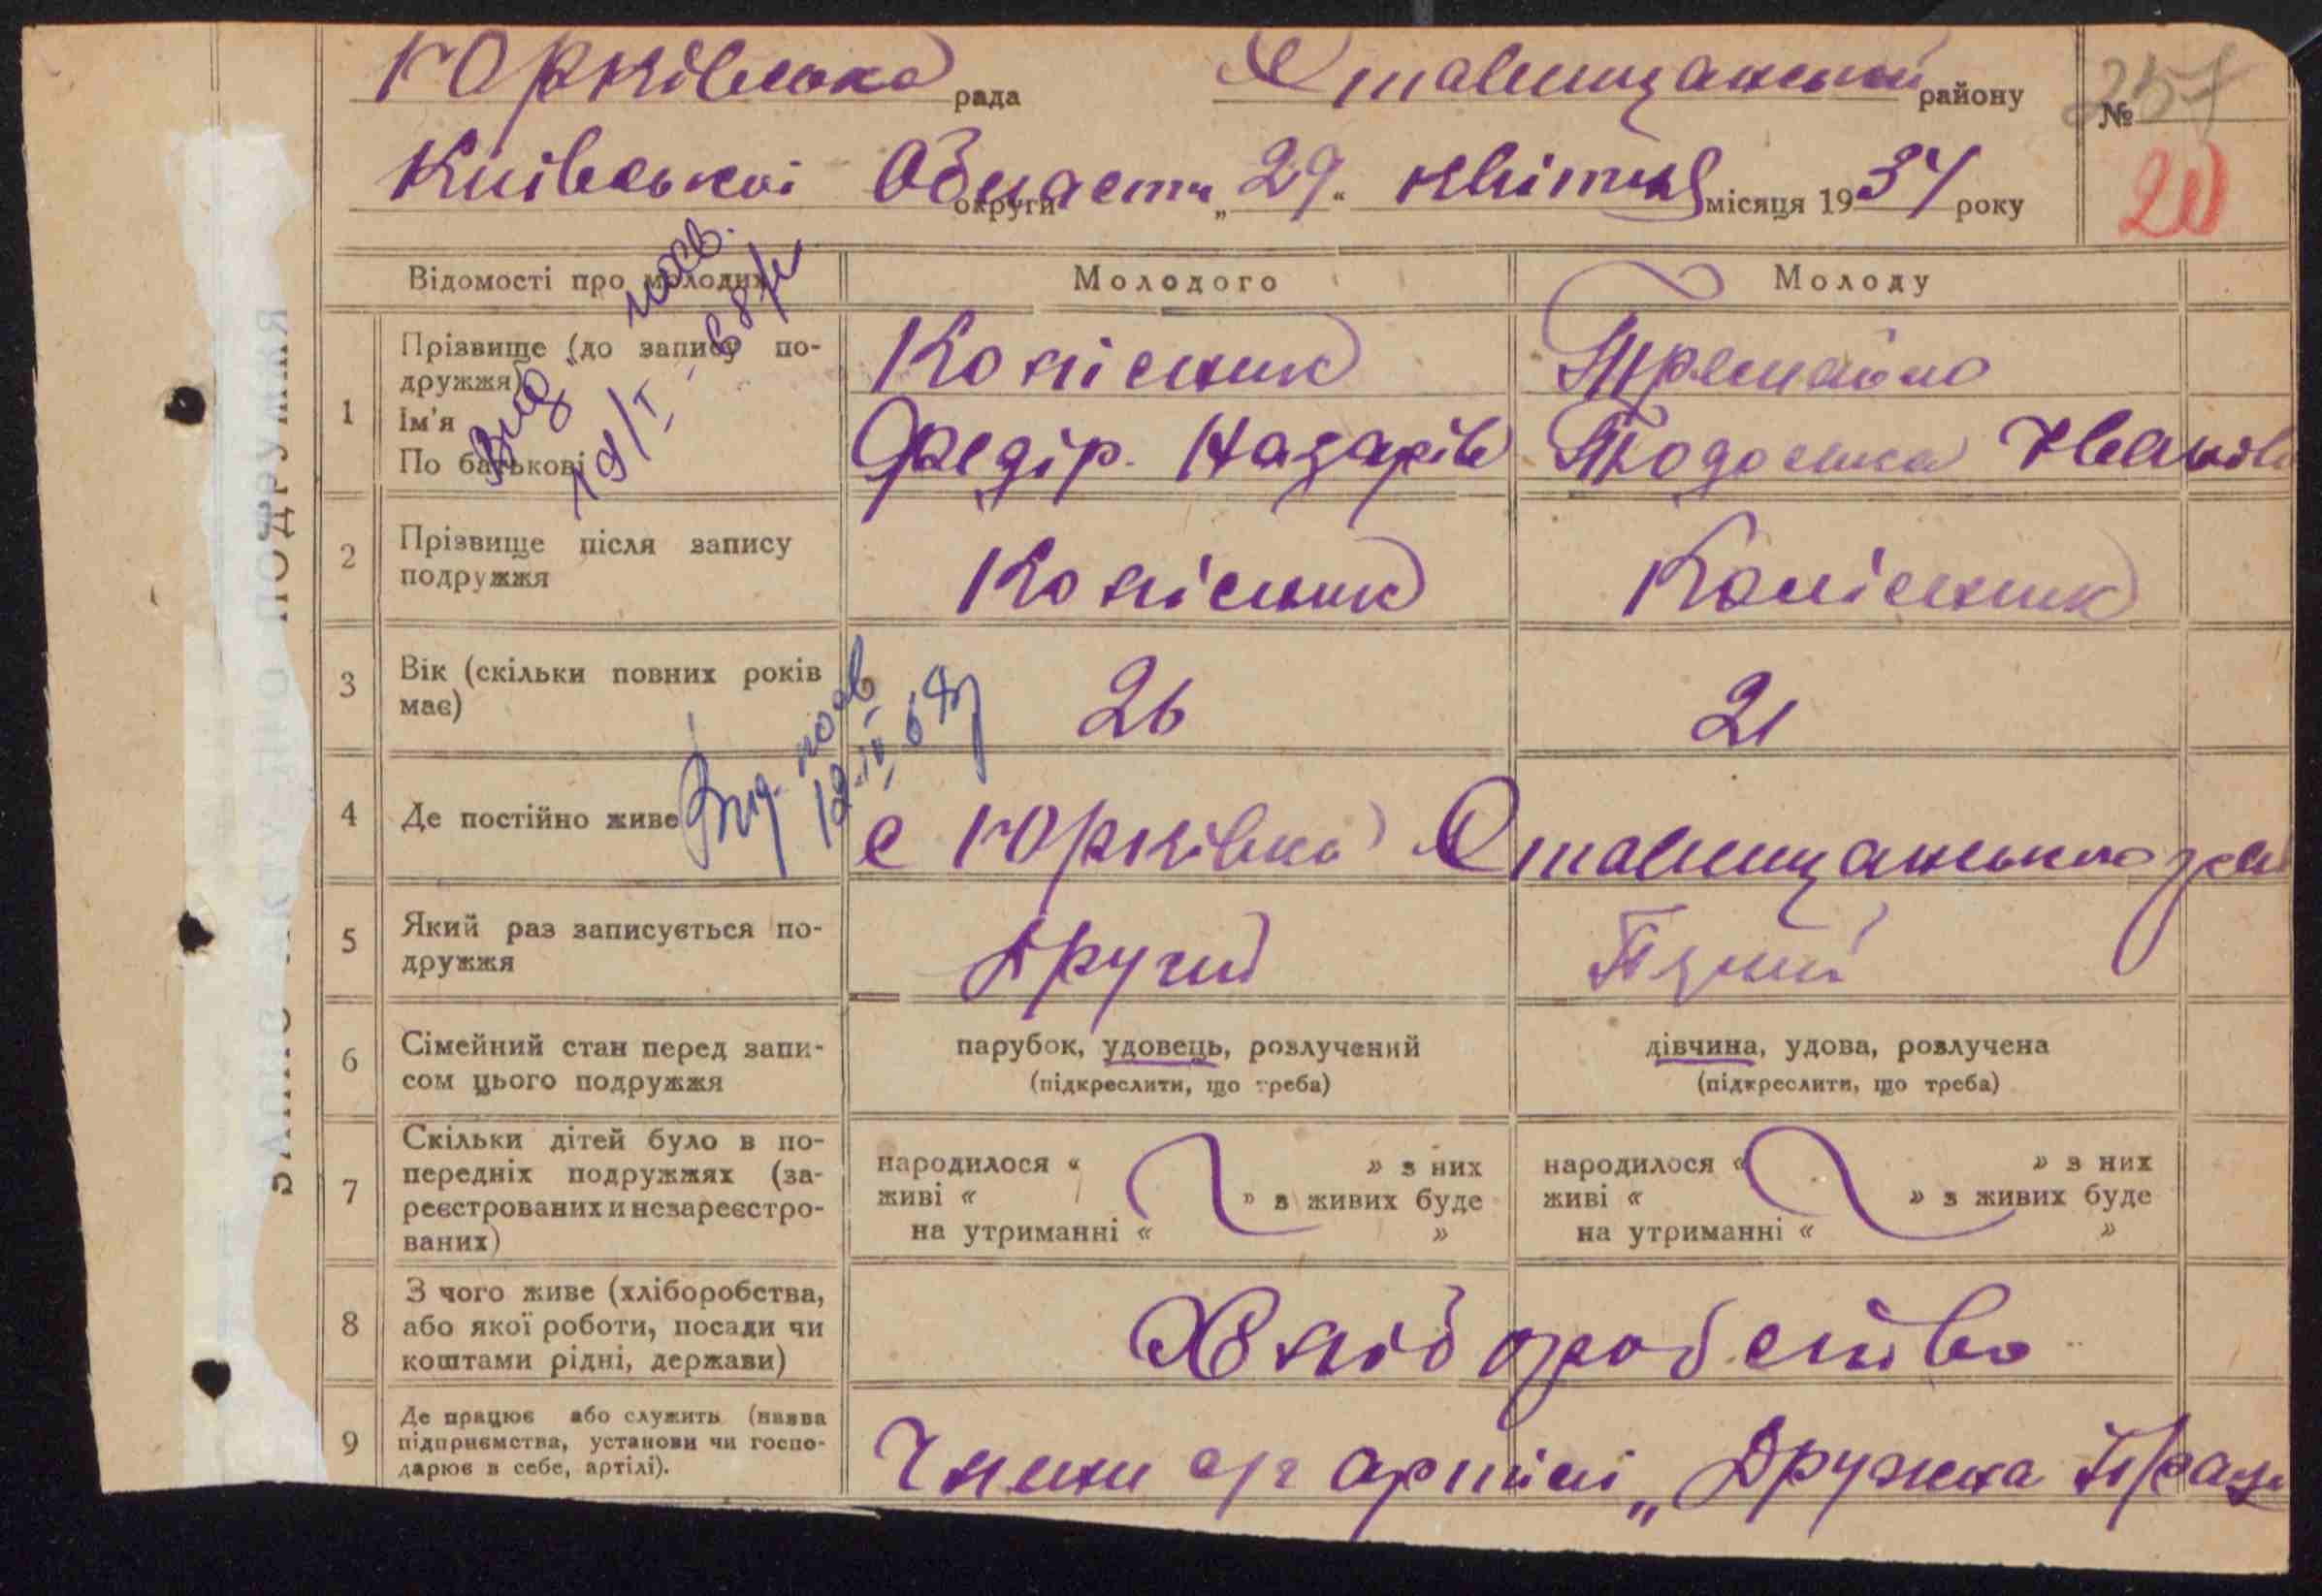 Юрківська рада Ставищанський району №257
Київської Області округи „29" квітня місяця 1934 року 20
Відомості про молодих Молодого Молоду
1 Прізвище (до запису подружжя) Колісник
Ім'я
По батькові Федір Назарів Тодоска Іванів
Вид. посв.
19/I - 68 р
2 Прізвище після запису Колісник Колісник
подружжя
3 Вік (скільки повних років 26 21
має)
Вид. посв
4 Де постійно живе с Юрківка Ставищанського рай
5 Який раз записується по-
дружжя Другий
6 Сімейний стан перед запи- парубок, удовець, розлучений дівчина, удова, розлучена
сом цього подружжя (підкреслити, що треба) (підкреслити, що треба)
7 Скільки дітей було в по-
передніх подружжях (за- народилося « » з них народилося « » з них
реєстрованих и незареєстро- живі « » з живих буде живі « » з живих буде
ваних) на утриманні « » на утриманні « »
8 З чого живе (хліборобства,
або якої роботи, посади чи Хліборобство
коштами рідні, держави)
9 Де працює або служить (назва
підприємства, установи чи госпо- Члени с/г артілі „Дружна Праця
дарює в себе, артілі).